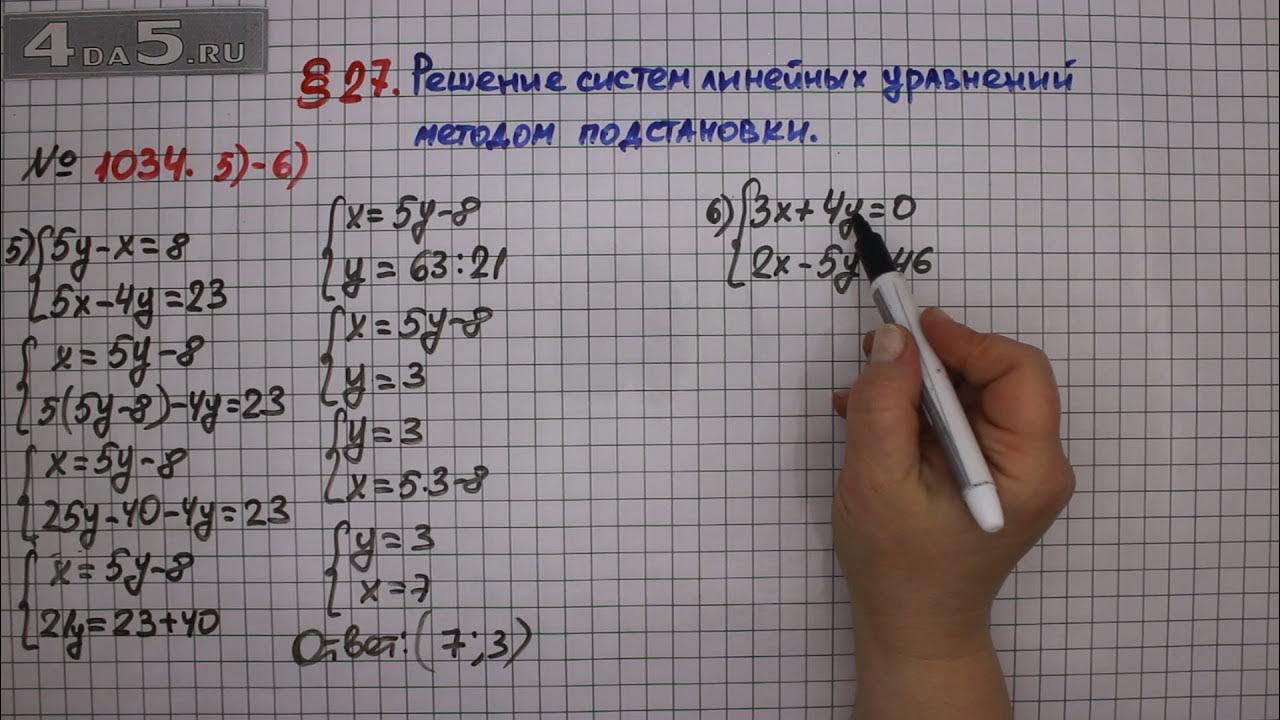 4DA5.RU
§ 27. Решение систем линейных уравнений
методом подстановки.
№ 1034. 5)-6)
5) { 5y-x=8
5x-4y=23
{ x=5y-8
5(5y-8)-4y=23
{ x=5y-8
25y-40-4y=23
{ x=5y-8
21y=23+40
{ x=5y-8
y=63:21
{ x=5y-8
y=3
{ y=3
x=5·3-8
{ y=3
x=7
Ответ: (7;3)
6) { 3x+4y=0
2x-5y 46